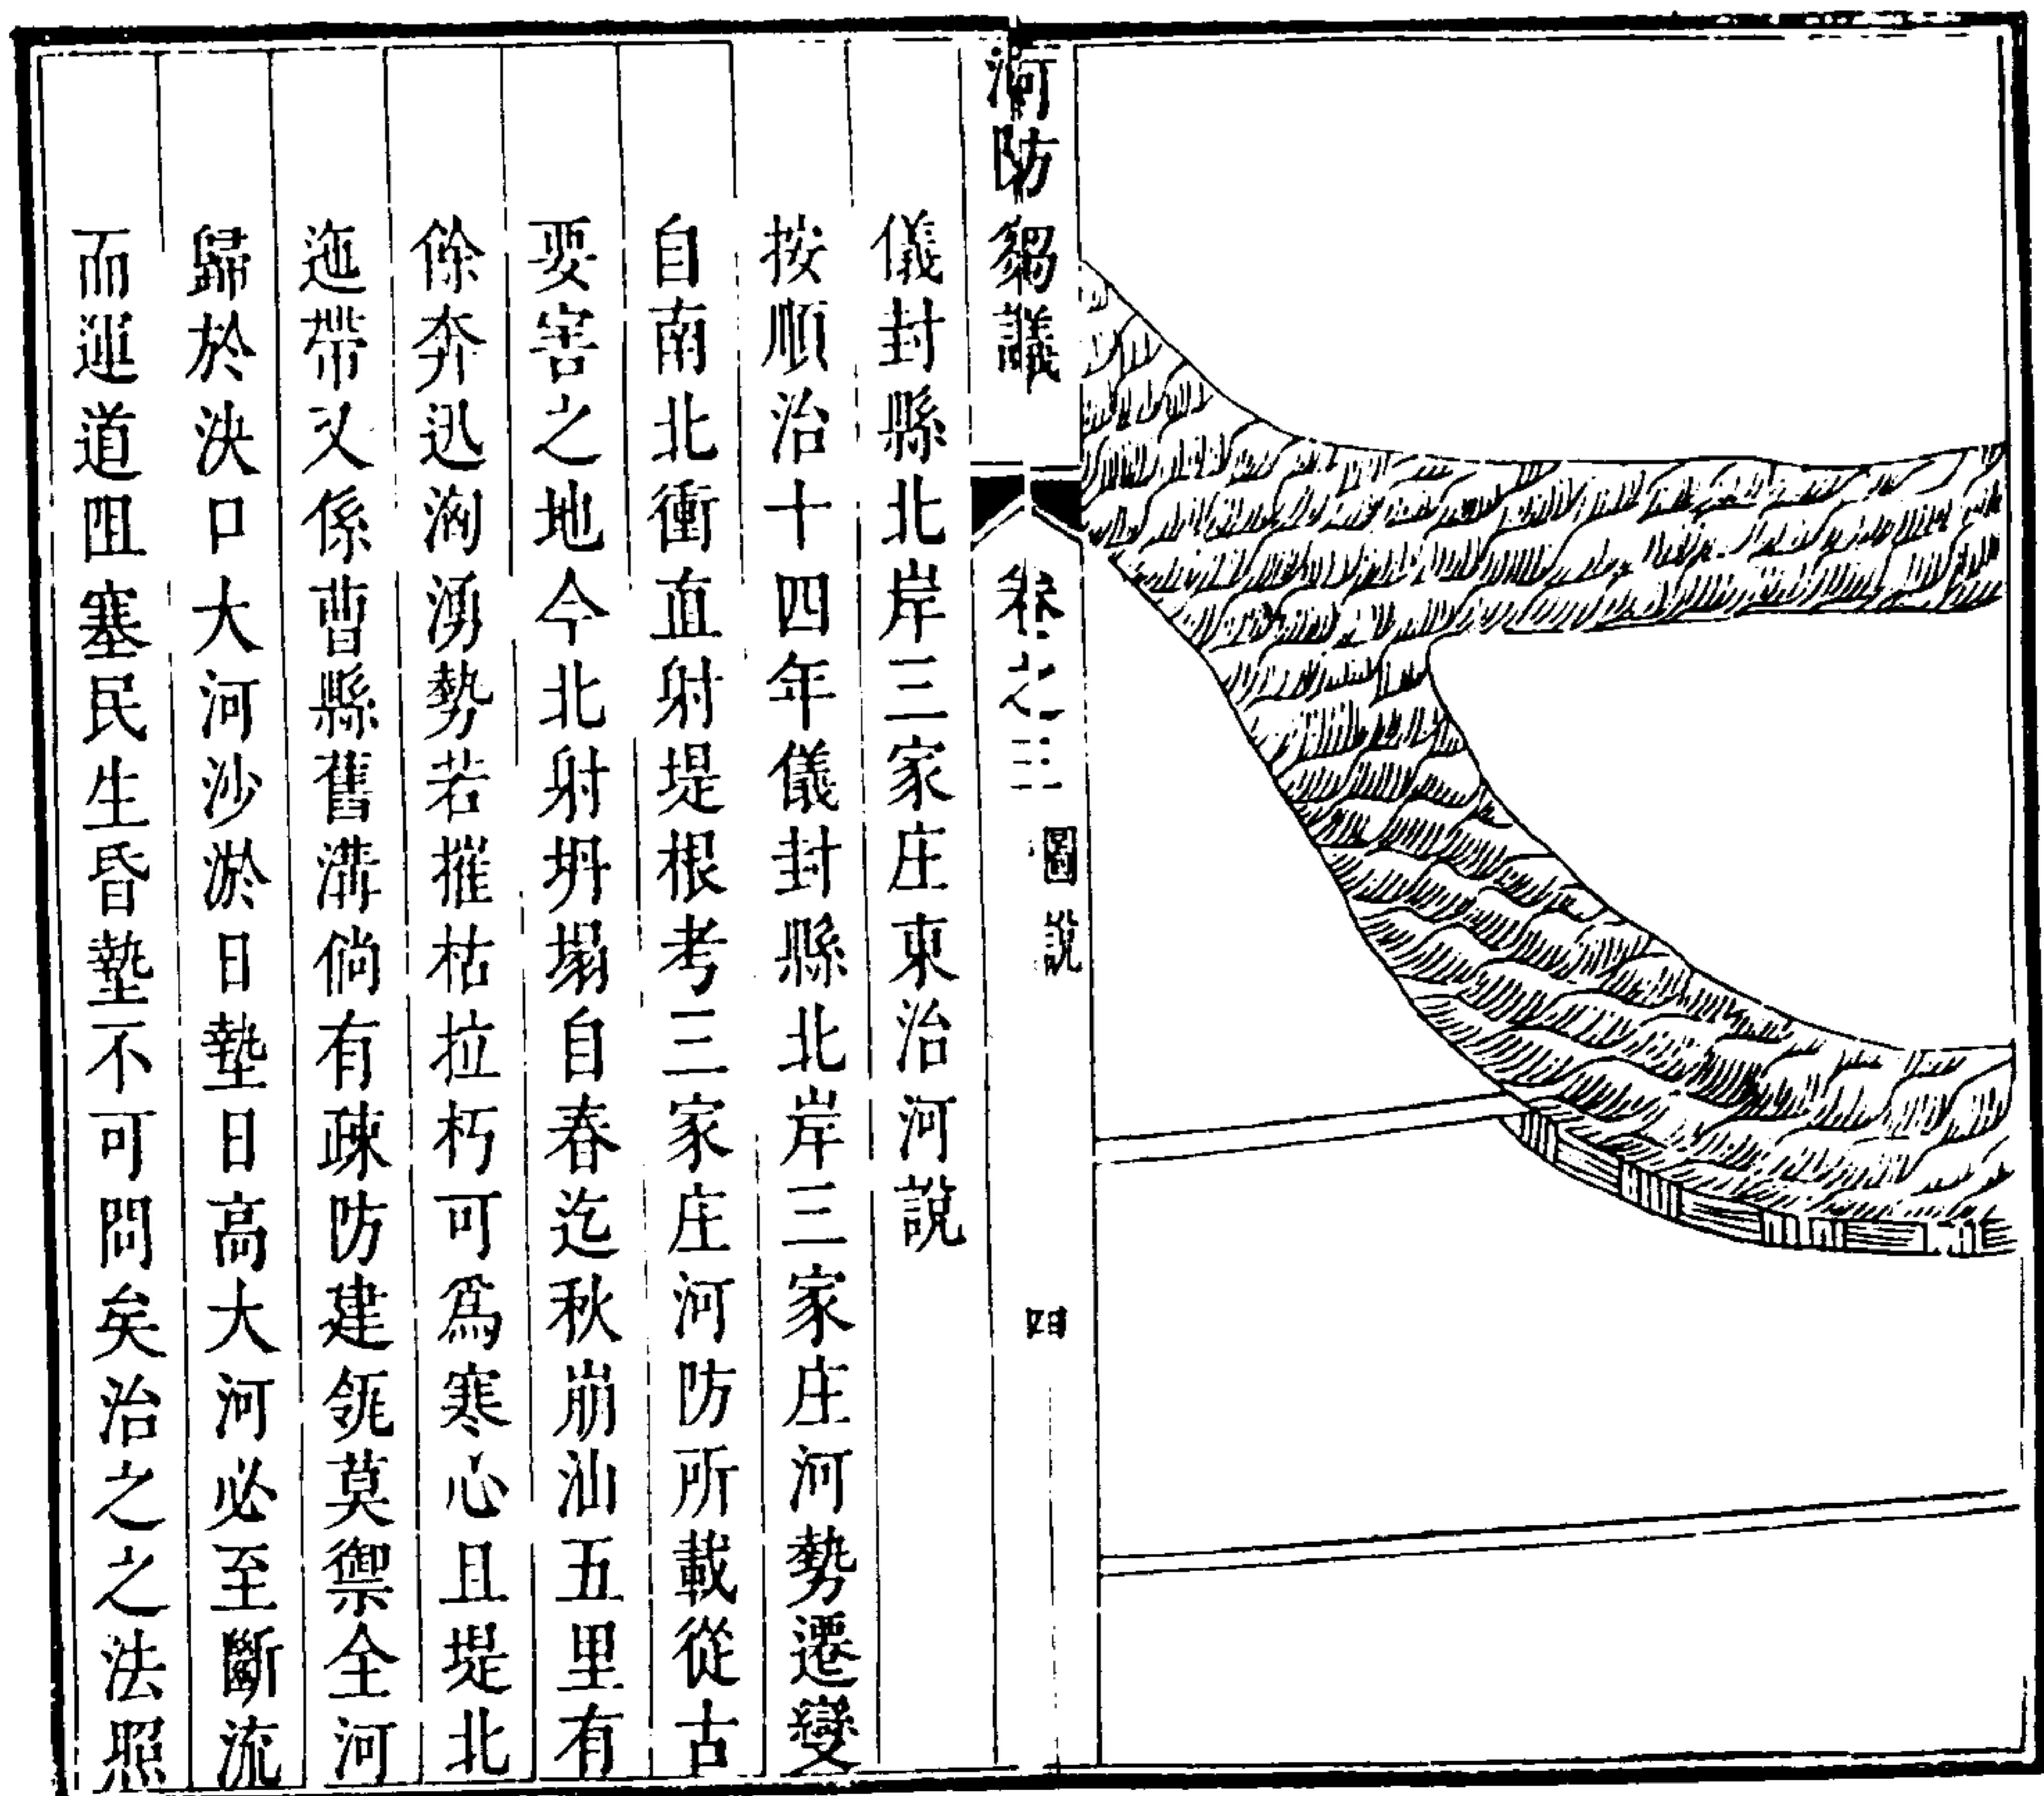 河防芻議
卷之三
圖說
四
儀封縣北岸三家庄東治河說
按順治十四年儀封縣北岸三家庄河勢遷變
自南北衝直射堤根考三家庄河防所載從古
要害之地今北射坍塌自春迄秋崩汕五里有
餘奔迅洶湧勢若摧枯拉朽可爲寒心且堤北
迤帶又係曹縣舊溝倘有疎防建瓴莫禦全河
歸於決口大河沙淤日墊日高大河必至斷流
而運道阻塞民生昏墊不可問矣治之之法照